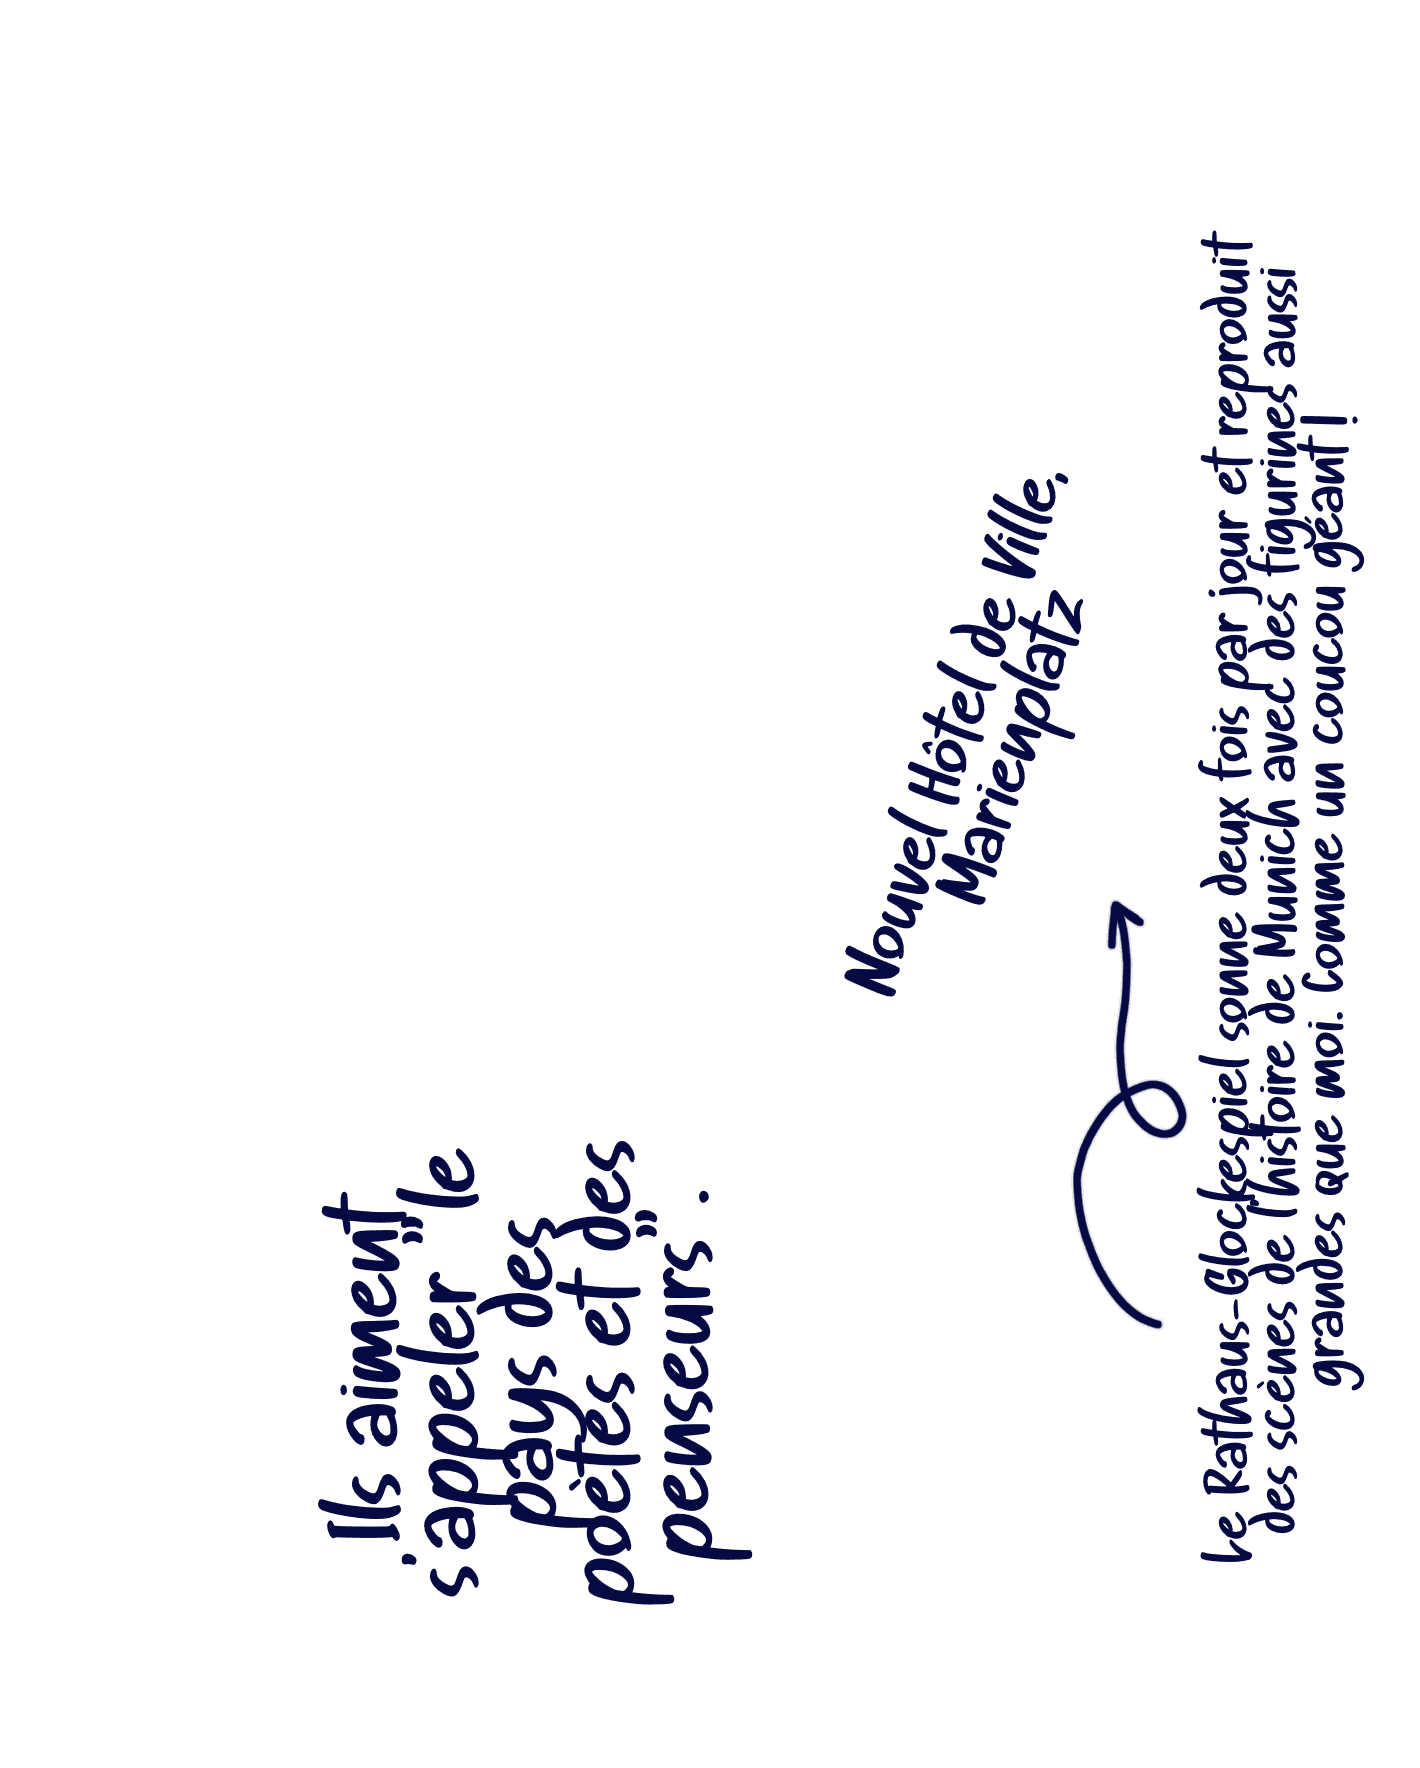 Ils aiment
s'appeler "le
pays des
poètes et des
penseurs".
Nouvel Hôtel de Ville,
Marienplatz
Le Rathaus-Glockespiel sonne deux fois par jour et reproduit
des scènes de l'histoire de Munich avec des figurines aussi
grandes que moi. Comme un coucou géant !